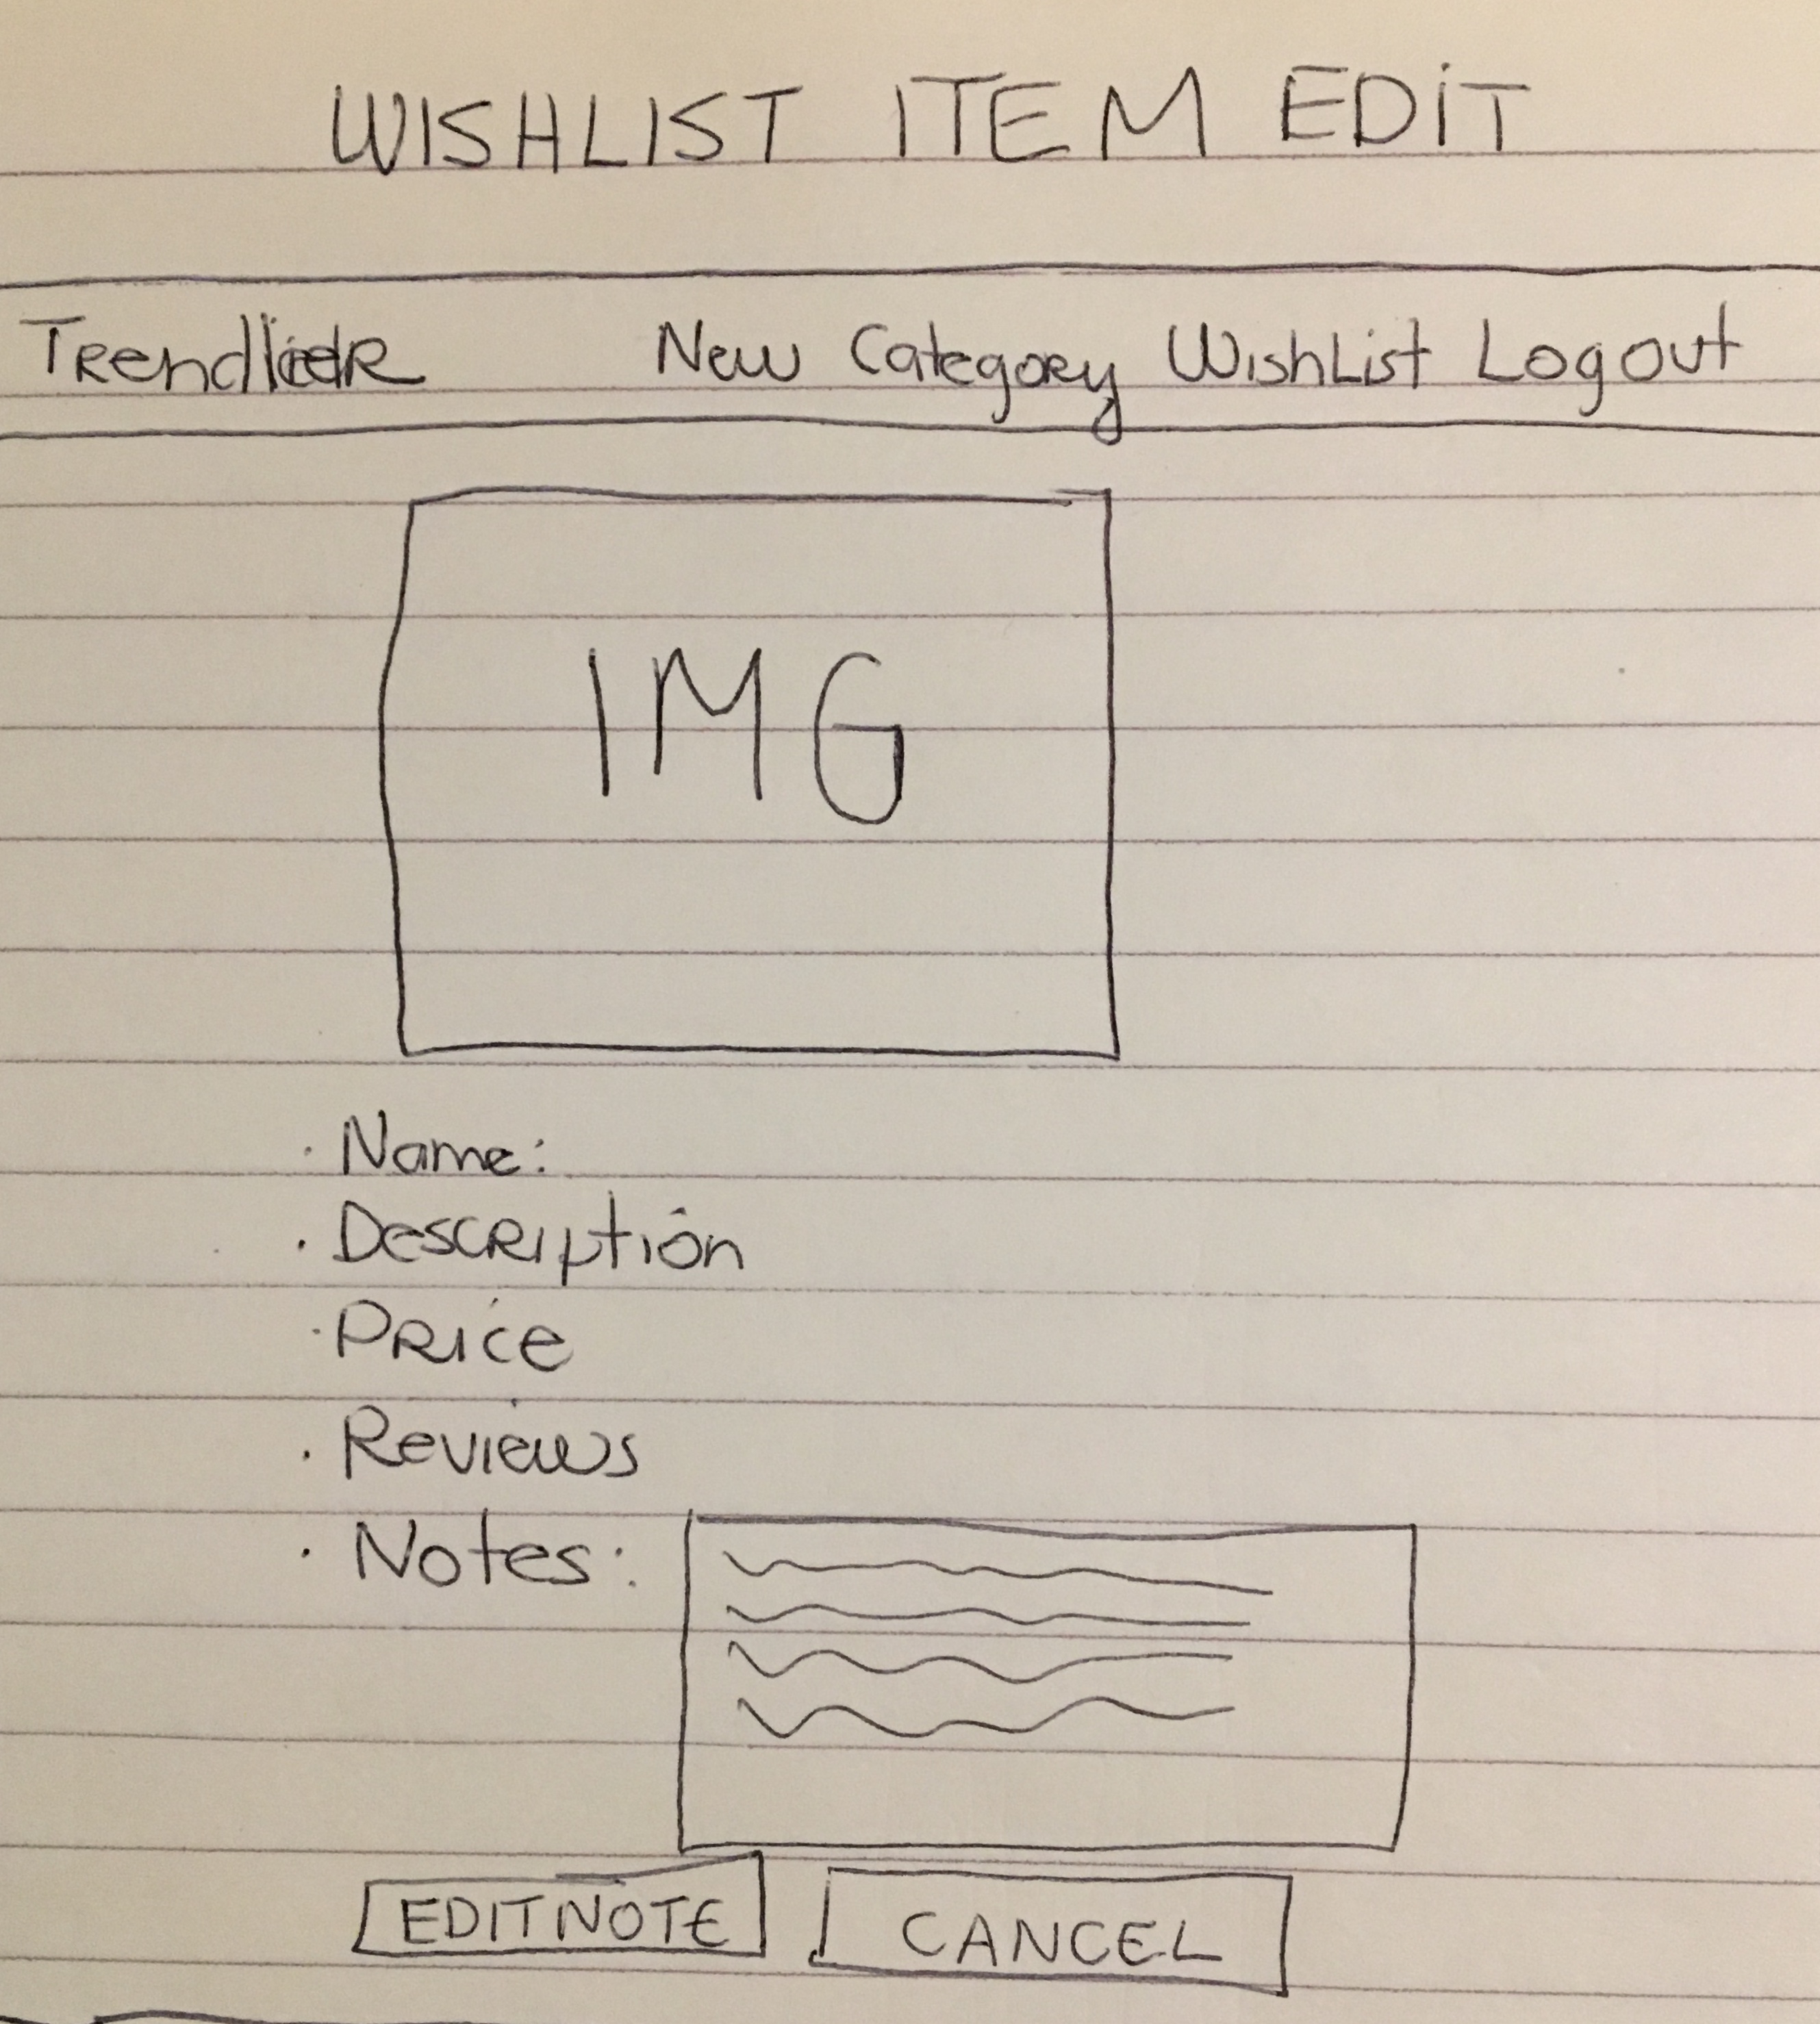 WISHLIST ITEM EDIT
New Category WishList Logout
IMG
· Name:
· Description
· Price
· Reviews
· Notes:
EDIT NOTE CANCEL